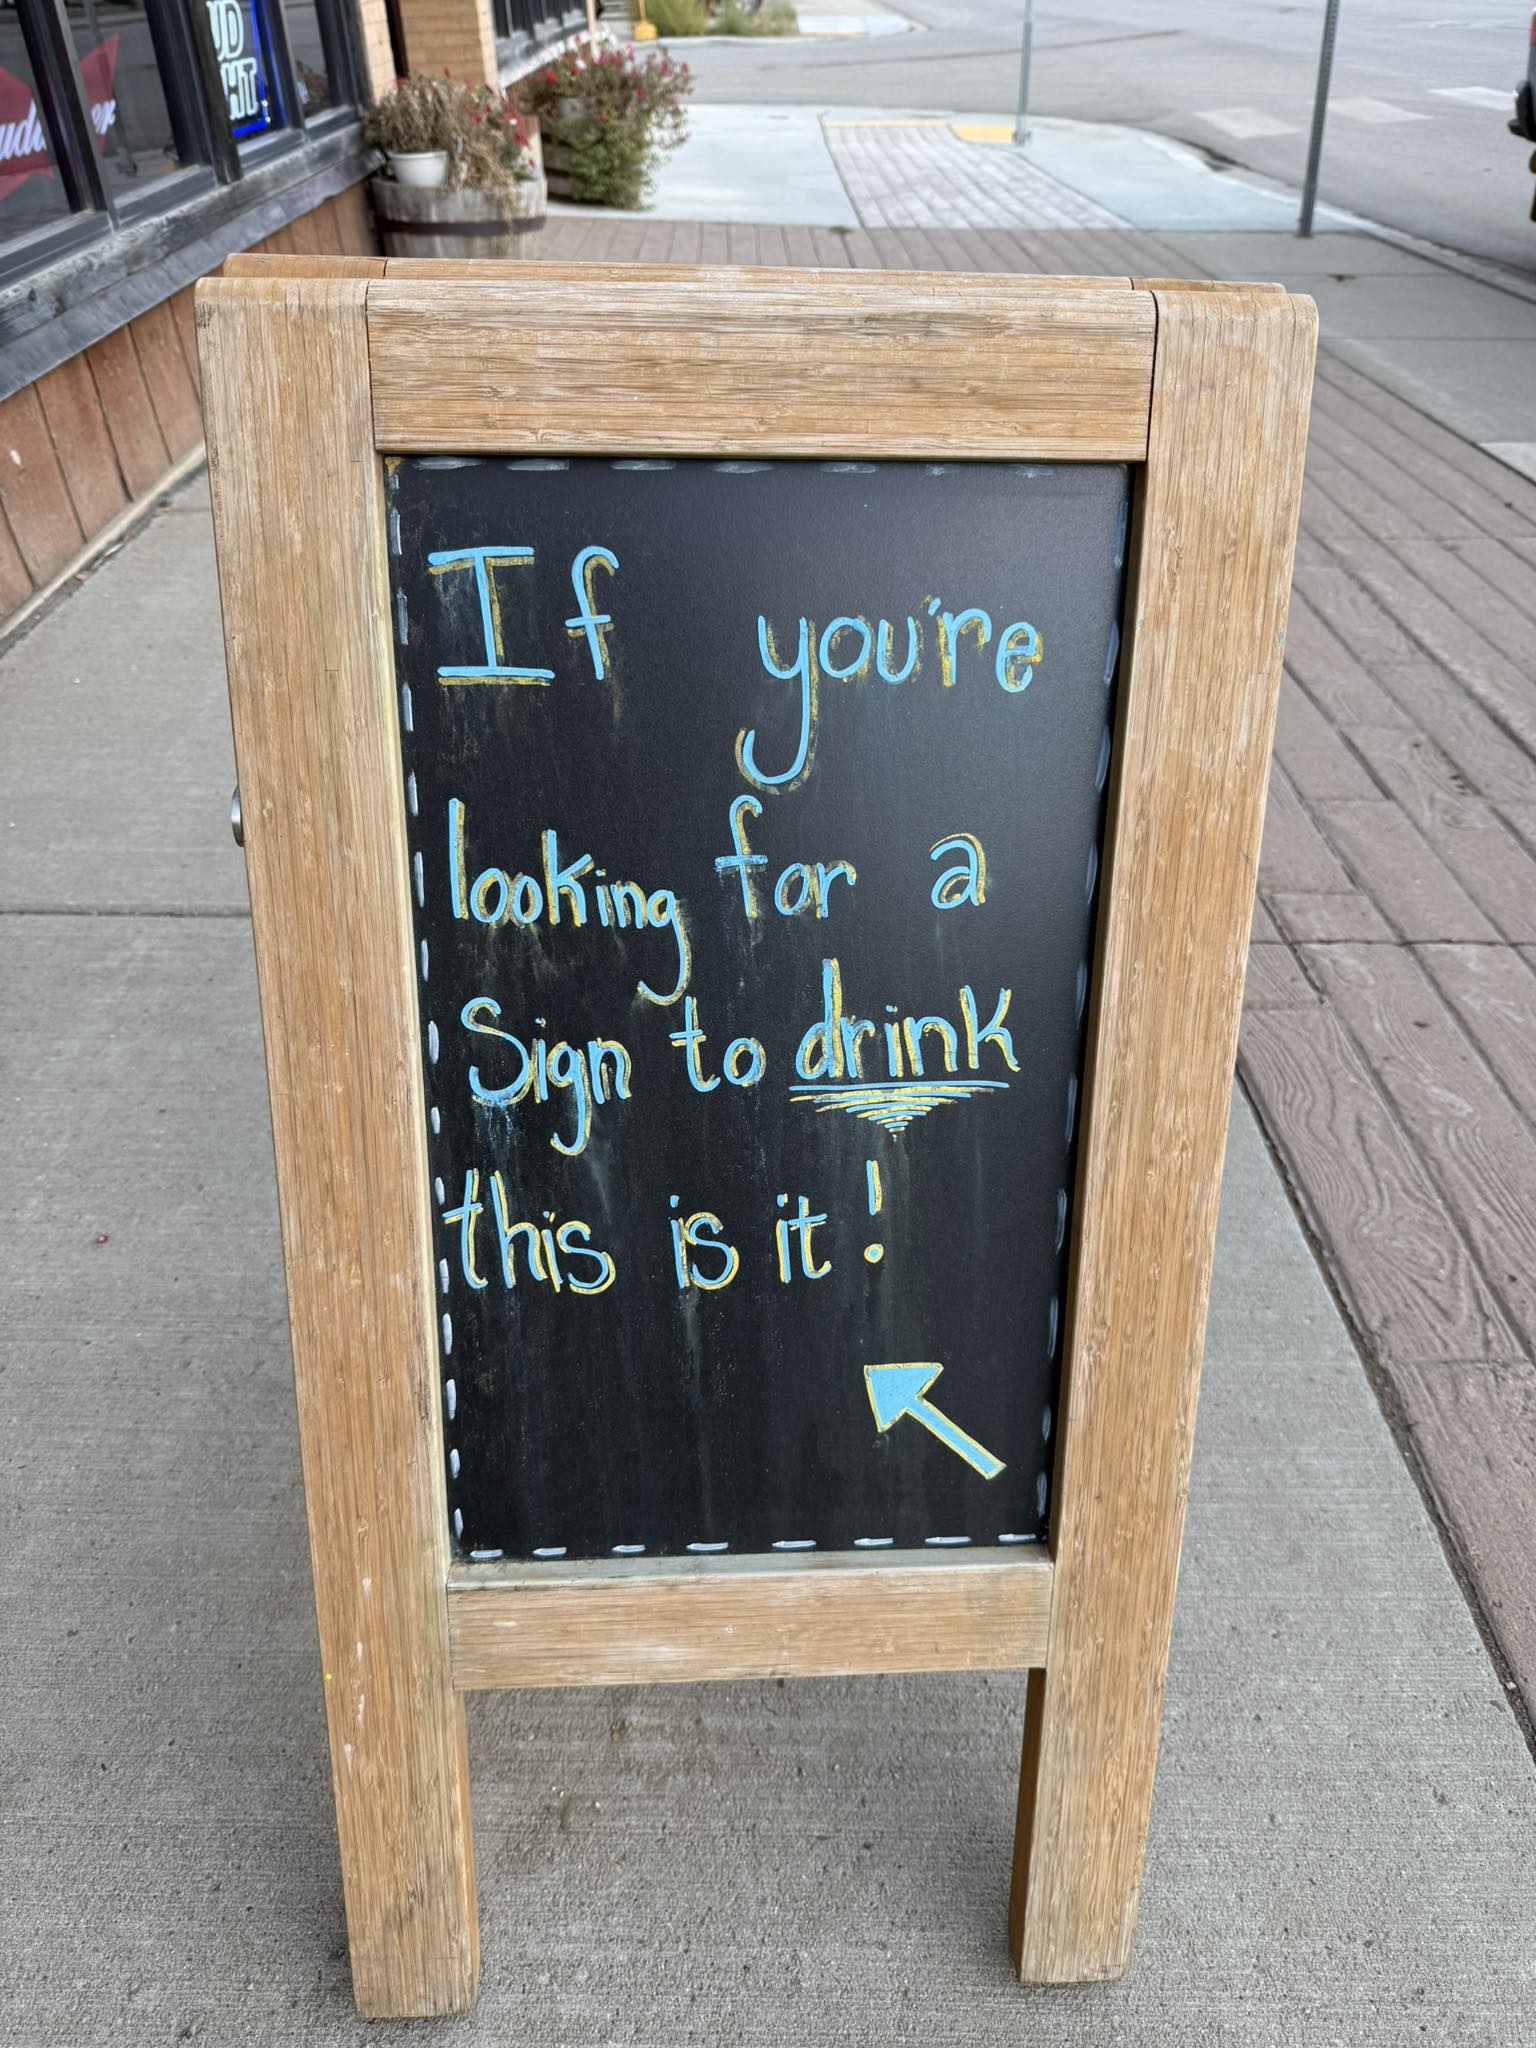 UD
HT
If you're
looking for a
Sign to drink
this is it!